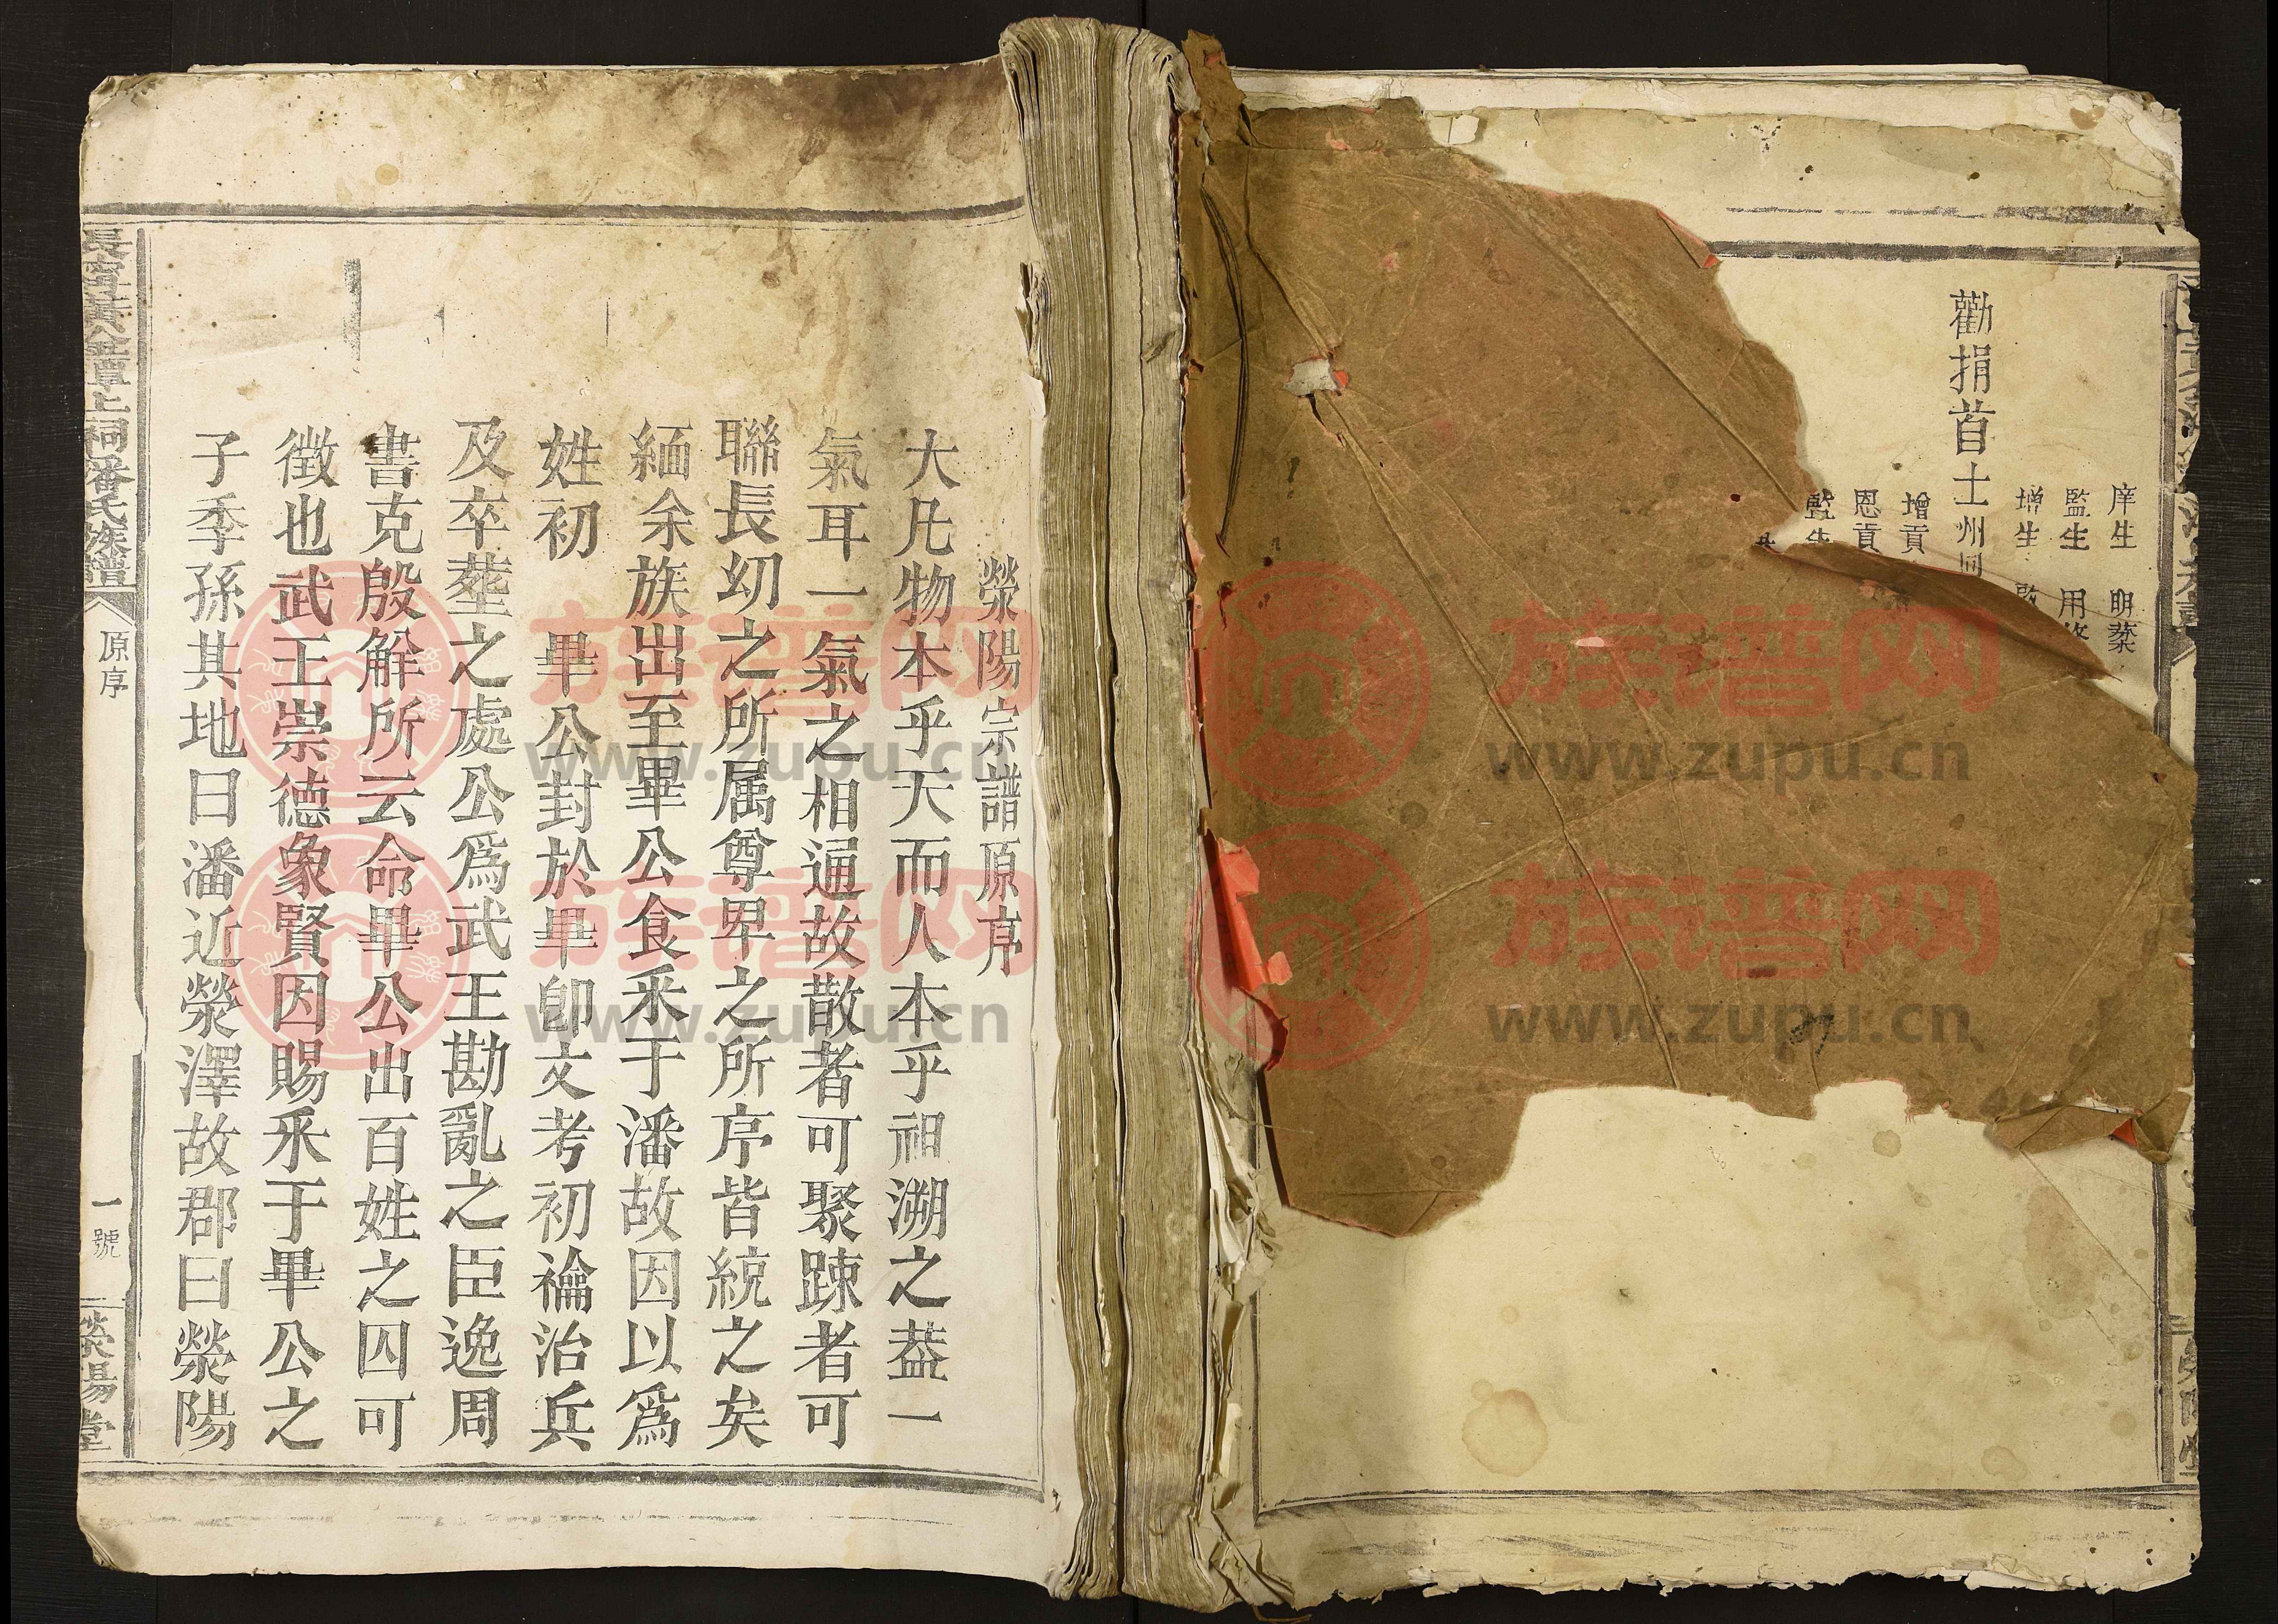 庠生 明蔾
監生 用
增生
勸捐首士州同
增貢
恩貢
監生
滎陽宗譜原序
大凡物本乎天而人本乎祖溯之葢一
氣耳一氣之相通故散者可聚踈者可
聯長幼之所属尊卑之所序皆統之矣
緬余族出至畢公食釆于潘故因以爲
姓初 畢公封於畢卽文考初禴治兵
及卒塟之處公爲武王勘亂之臣逸周
書克殷解所云命畢公出百姓之囚可
徵也武王崇德象賢因賜釆于畢公之
子季孫其地曰潘近滎澤故郡曰滎陽
長甯黃金潭上祠潘氏族譜
原序
一號
滎陽堂
族谱网
www.zupu.cn
族谱网
www.zupu.cn
族谱网
www.zupu.cn
族谱网
www.zupu.cn